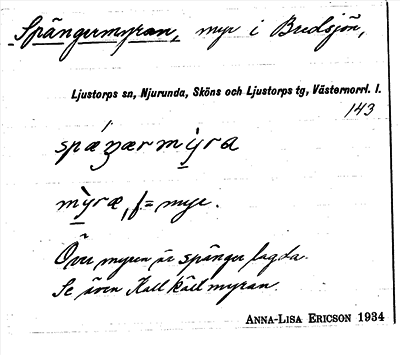 Spängermyran, myr i Bredsjön,
Ljustorps sn, Njurunda, Sköns och Ljustorps tg, Västernorrl. l.
143
spáŋærmỳra
mỳræ, f = myr.
Över myren är spänger lagda.
Se även Kall källmyran.
ANNA-LISA ERICSON 1934